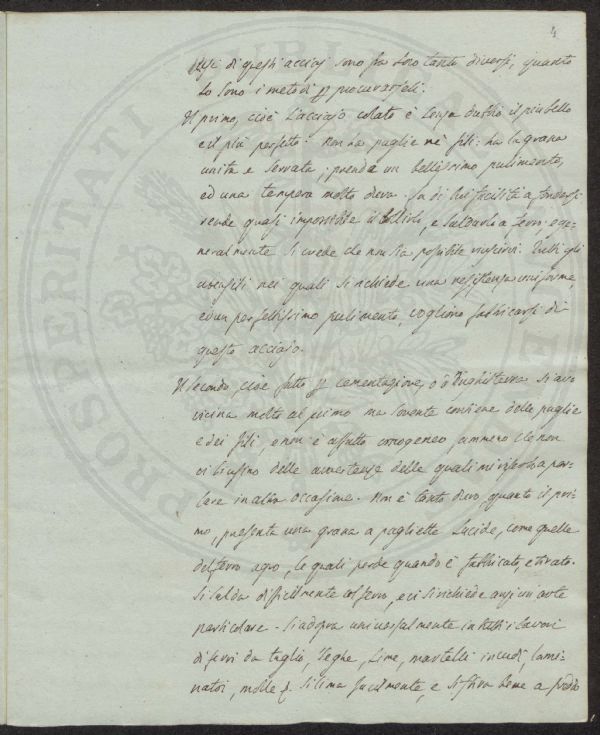 4
Usi di questi acciaj sono fra loro tanto diversi, quanto
lo sono i metodi p procurarseli.
Il primo, cioè l'acciajo colato è senza dubbio il più bello
e il più perfetto: Non ha paglie nè fili: ha la grana
unita e serrata; prende un bellissimo pulimento,
ed una tempera molto dura. La di lui facilità a fondersi
rende quasi impossibile il bollirlo, e saldarlo a ferro, e ge-
neralmente si crede che non sia possibile riuscirvi. Tutti gli
utensili nei quali si richiede una resistenza uniforme,
ed un perfettissimo pulimento, vogliono fabbricarsi di
questo acciajo.
Il secondo, cioè fatto p cementazione, o d'Inghilterra si av-
vicina molto al primo ma sovente contiene delle paglie
e dei fili, e non è affatto omogeneo ammeno che non
ci si usino delle avvertenze delle quali mi riserbo a par-
lare in altra occasione. Non è tanto duro quanto il pri-
mo, presenta una grana a pagliette lucide, come quelle
del ferro agro, le quali perde quando è fabbricato, e tirato.
Si salda difficilmente col ferro, e ci si richiede anzi un'arte
particolare. Si adopra universalmente in tutti i lavori
di ferri da taglio, seghe, lime, martelli incudi, lami-
natoj, molle &. Si lima facilmente, e si tira bene a freddo
PROSPERITATI PUBLICAE